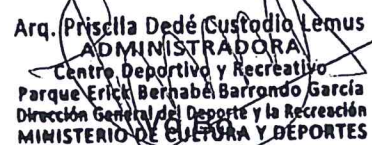 Arq. Priscila Dedé Custodio Lemus
ADMINISTRADORA
Centro Deportivo y Recreativo
Parque Erick Bernabé Barrondo García
Dirección General del Deporte y la Recreación
MINISTERIO DE CULTURA Y DEPORTES